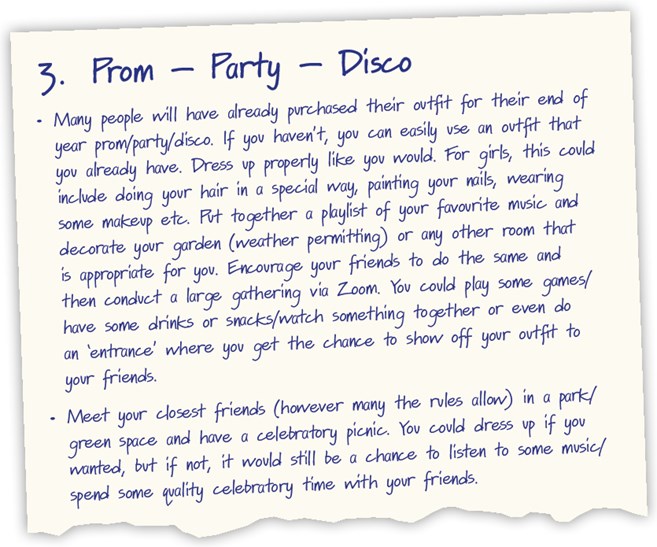 3. Prom – Party – Disco
• Many people will have already purchased their outfit for their end of
year prom/party/disco. If you haven't, you can easily use an outfit that
you already have. Dress up properly like you would. For girls, this could
include doing your hair in a special way, painting your nails, wearing
some makeup etc. Put together a playlist of your favourite music and
decorate your garden (weather permitting) or any other room that
is appropriate for you. Encourage your friends to do the same and
then conduct a large gathering via Zoom. You could play some games/
have some drinks or snacks/watch something together or even do
an 'entrance' where you get the chance to show off your outfit to
your friends.
• Meet your closest friends (however many the rules allow) in a park/
green space and have a celebratory picnic. You could dress up if you
wanted, but if not, it would still be a chance to listen to some music/
spend some quality celebratory time with your friends.